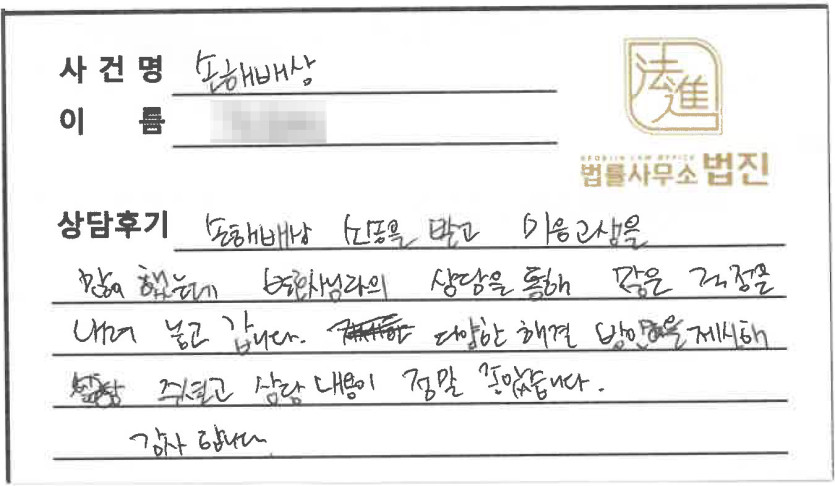 사건명 손해배상
이 름
法進
BEOBJIN LAW OFFICE
법률사무소 법진
상담후기 손해배상 신공을 받고 마음고생을
많이 했는데 변호사님과의 상담을 통해 많은 걱정을
내려 놓고 갑니다. 다양한 해결 방안을 제시해
주셨고 상담 내용이 정말 좋았습니다.
감사 합니다.